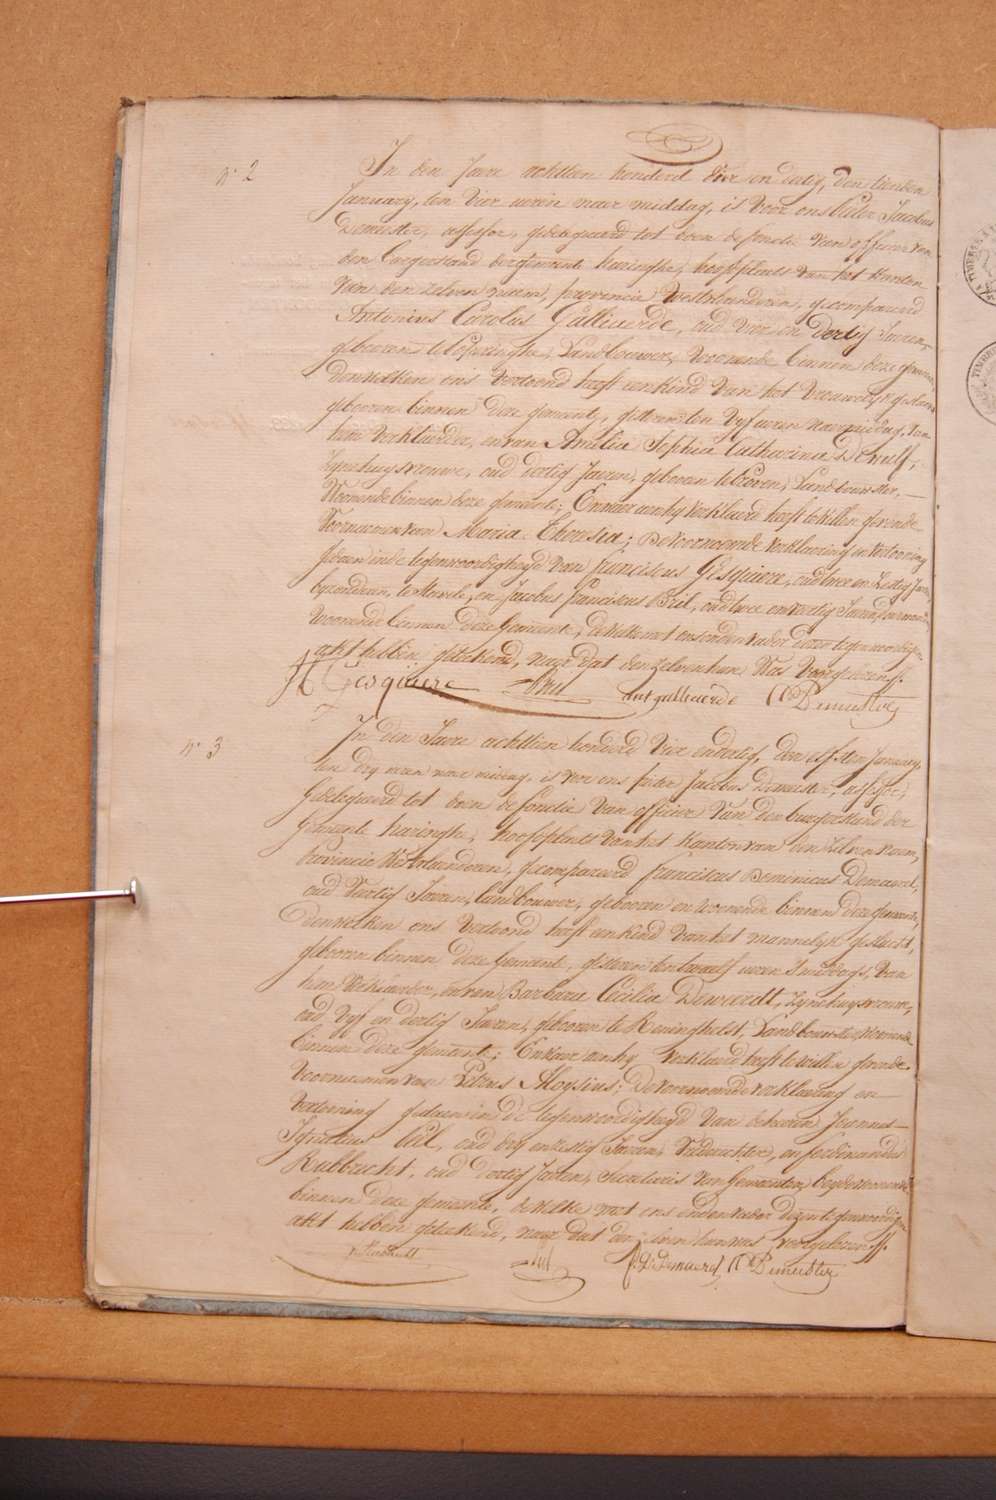 n° 2
In den Jaere achttien honderd vier en dertig, den tienden
January, ten vier uren naer middag, is voor ons Pieter Jacobus
Demeester, assessor, gedelegueerd tot doen de fonctie van officier van
den burgerstand der gemeente haringhe, hoofdplaets van het kanton
van den zelven naem, provincie Westvlaenderen, gecompareerd
Antonius Carolus Galliaerde, oud vier en dertig Jaeren,
geboren te Poperinghe, Landbouwer, Woonende binnen deze gemeente,
denwelken ons vertoond heeft een kind van het vrouwelyk geslacht
geboren binnen deze gemeente, gisteren ten vyf uren naermiddag, van
hem verklaerder, en van Amelia Sophia Catharina Dewulf,
zyne huysvrouwe, oud dertig Jaeren, geboren te Proven, Landbouwster,
Woonende binnen deze gemeente; En waer aen hy verklaerd heeft te willen gevende
Voornaemen van Maria Theresia; De voornoemde verklaering en vertooning
gedaen in de tegenwoordigheyd van franciscus Gesquiere, oud twee en zestig Jaeren,
byzonderen, te Stavele, en Jacobus Franciscus Bril, oud twee en veertig Jaeren,
woonende binnen deze Gemeente, dewelke met ons ende vader dezen tegenwoordigen
akt hebben geteekend, naer dat den zelven hun was voorgelezen.
Gesquiere Bril ant galliaerde P J Demeester
n° 3
In den Jaere achttien honderd vier en dertig, den elfsten January,
ten dry uren naer middag, is voor ons pieter Jacobus Demeester, assessor,
Gedelegueerd tot doen de fonctie van officier van den burgerstand der
Gemeente haringhe, hoofdplaets van het kanton van den zelven naem,
Provincie Westvlaenderen, gecompareerd franciscus Dominicus Demaerel,
oud veertig Jaeren, landbouwer, geboren en woonende binnen deze gemeente,
Denwelken ons vertoond heeft een kind van het mannelyk geslacht,
geboren binnen deze Gemeente, gisteren ten twaelf uren 's middags, van
hem verklaerder, en van Barbara Cecilia Dewaedt, zyne huysvrouwe,
oud vyf en dertig Jaeren, geboren te Reninghelst, Landbouwster, Woonende
binnen deze gemeente; En waer aen hy verklaerd heeft te willen gevende
Voornaemen van Petrus Aloysius; De voornoemde verklaering en
vertooning gedaen in de tegenwoordigheyd van de heeren Joannes
Ignatius Bril, oud dry en zestig Jaeren, Veldwachter, en ferdinandus
Rubbrecht, oud dertig Jaeren, Secretaris van Gemeenten, beyde woonende
binnen deze gemeente, dewelke met ons ende vader dezen tegenwoordigen
akt hebben geteekend, naer dat den zelven hun was voorgelezen.
Rubbrecht Bril f. D. Demaerel P J Demeester